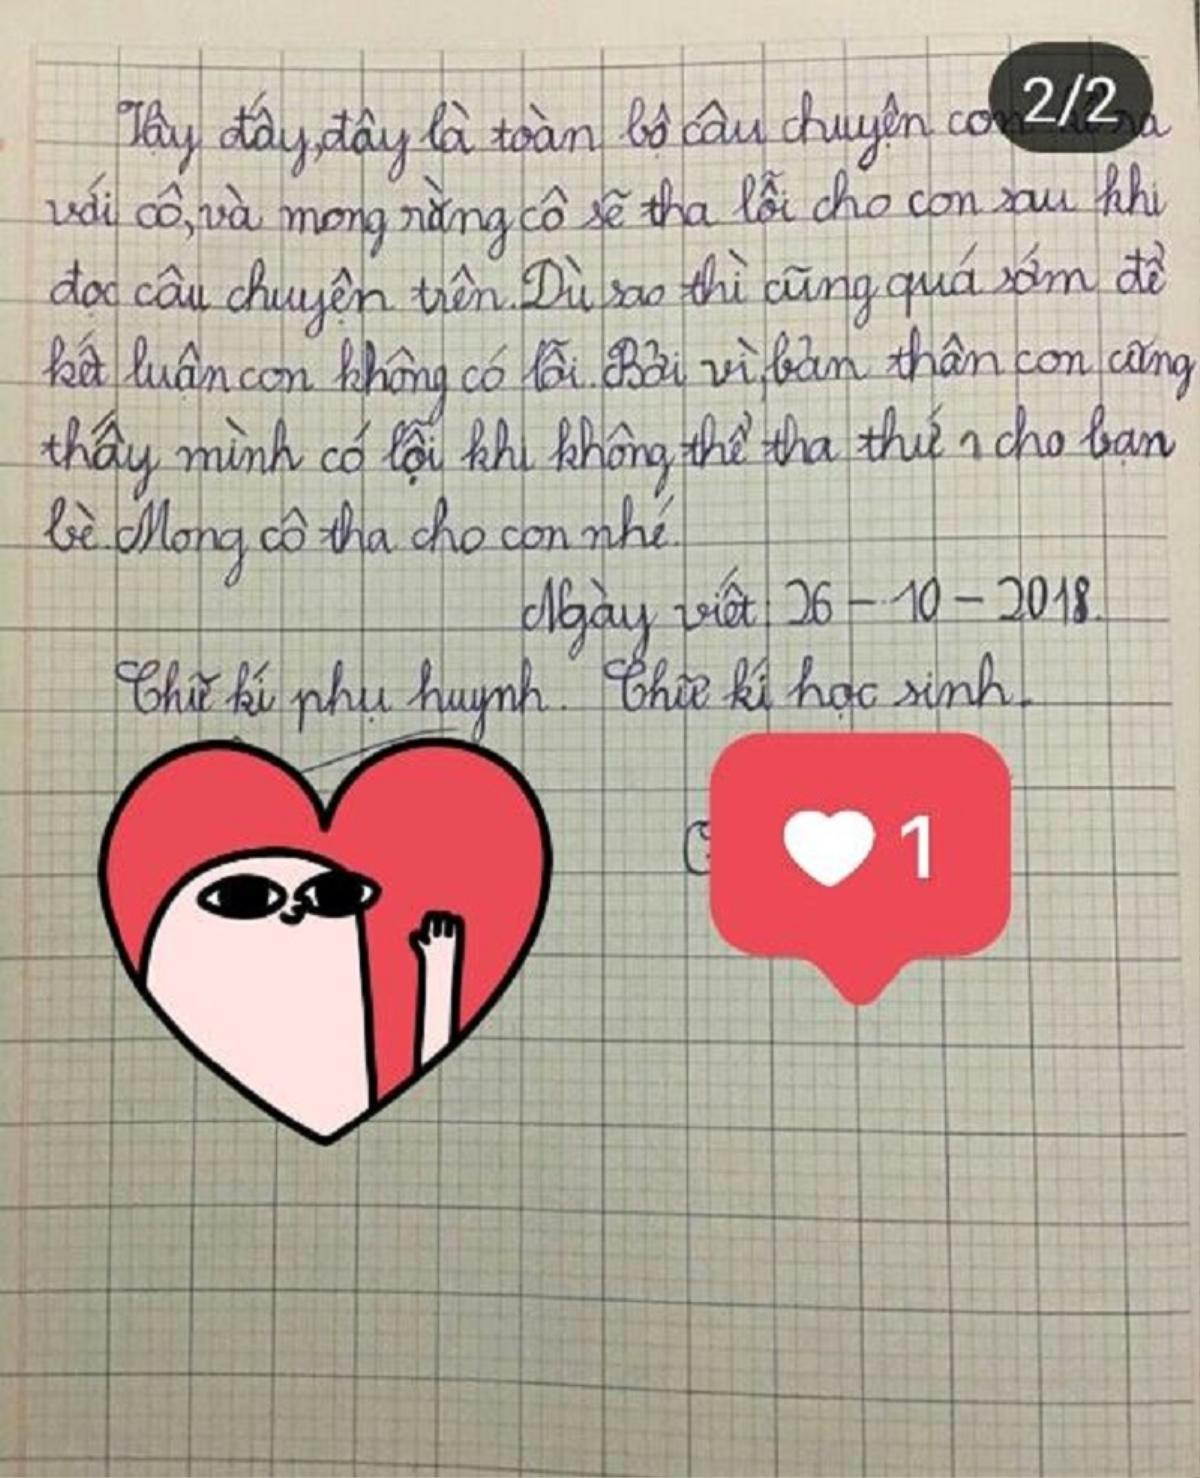 2/2
Vậy đấy, đây là toàn bộ câu chuyện con
với cô, và mong rằng cô sẽ tha lỗi cho con sau khi
đọc câu chuyện trên. Dù sao thì cũng quá sớm để
kết luận con không có lỗi. Bởi vì, bản thân con cũng
thấy mình có lỗi khi không thể tha thứ cho bạn
bè. Mong cô tha cho con nhé.
Ngày viết: 26 - 10 - 2018.
Chữ kí phụ huynh. Chữ kí học sinh.
1